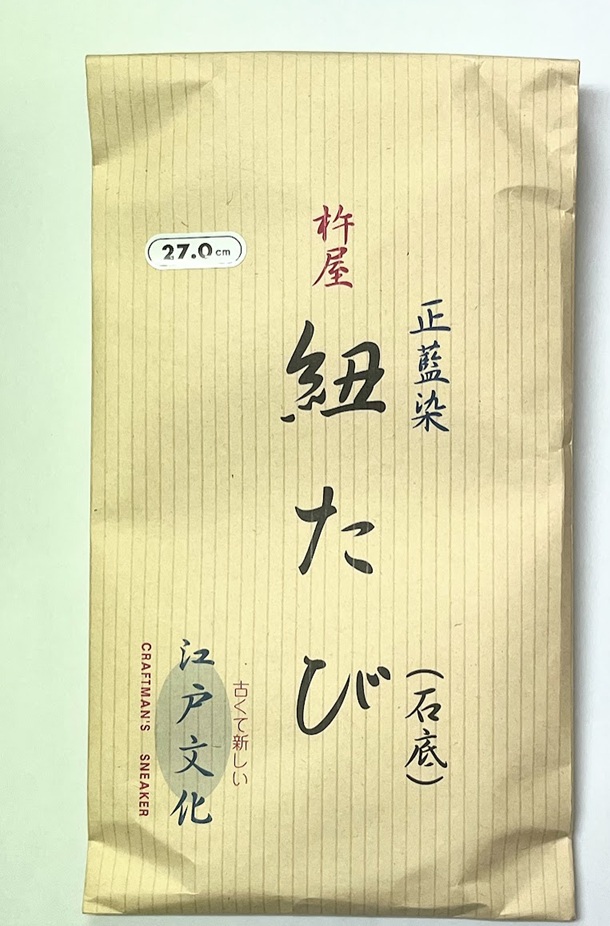 正藍染
(石底)
杵屋
紐たび
27.0cm
古くて新しい
江戸文化
CRAFTMAN'S SNEAKER